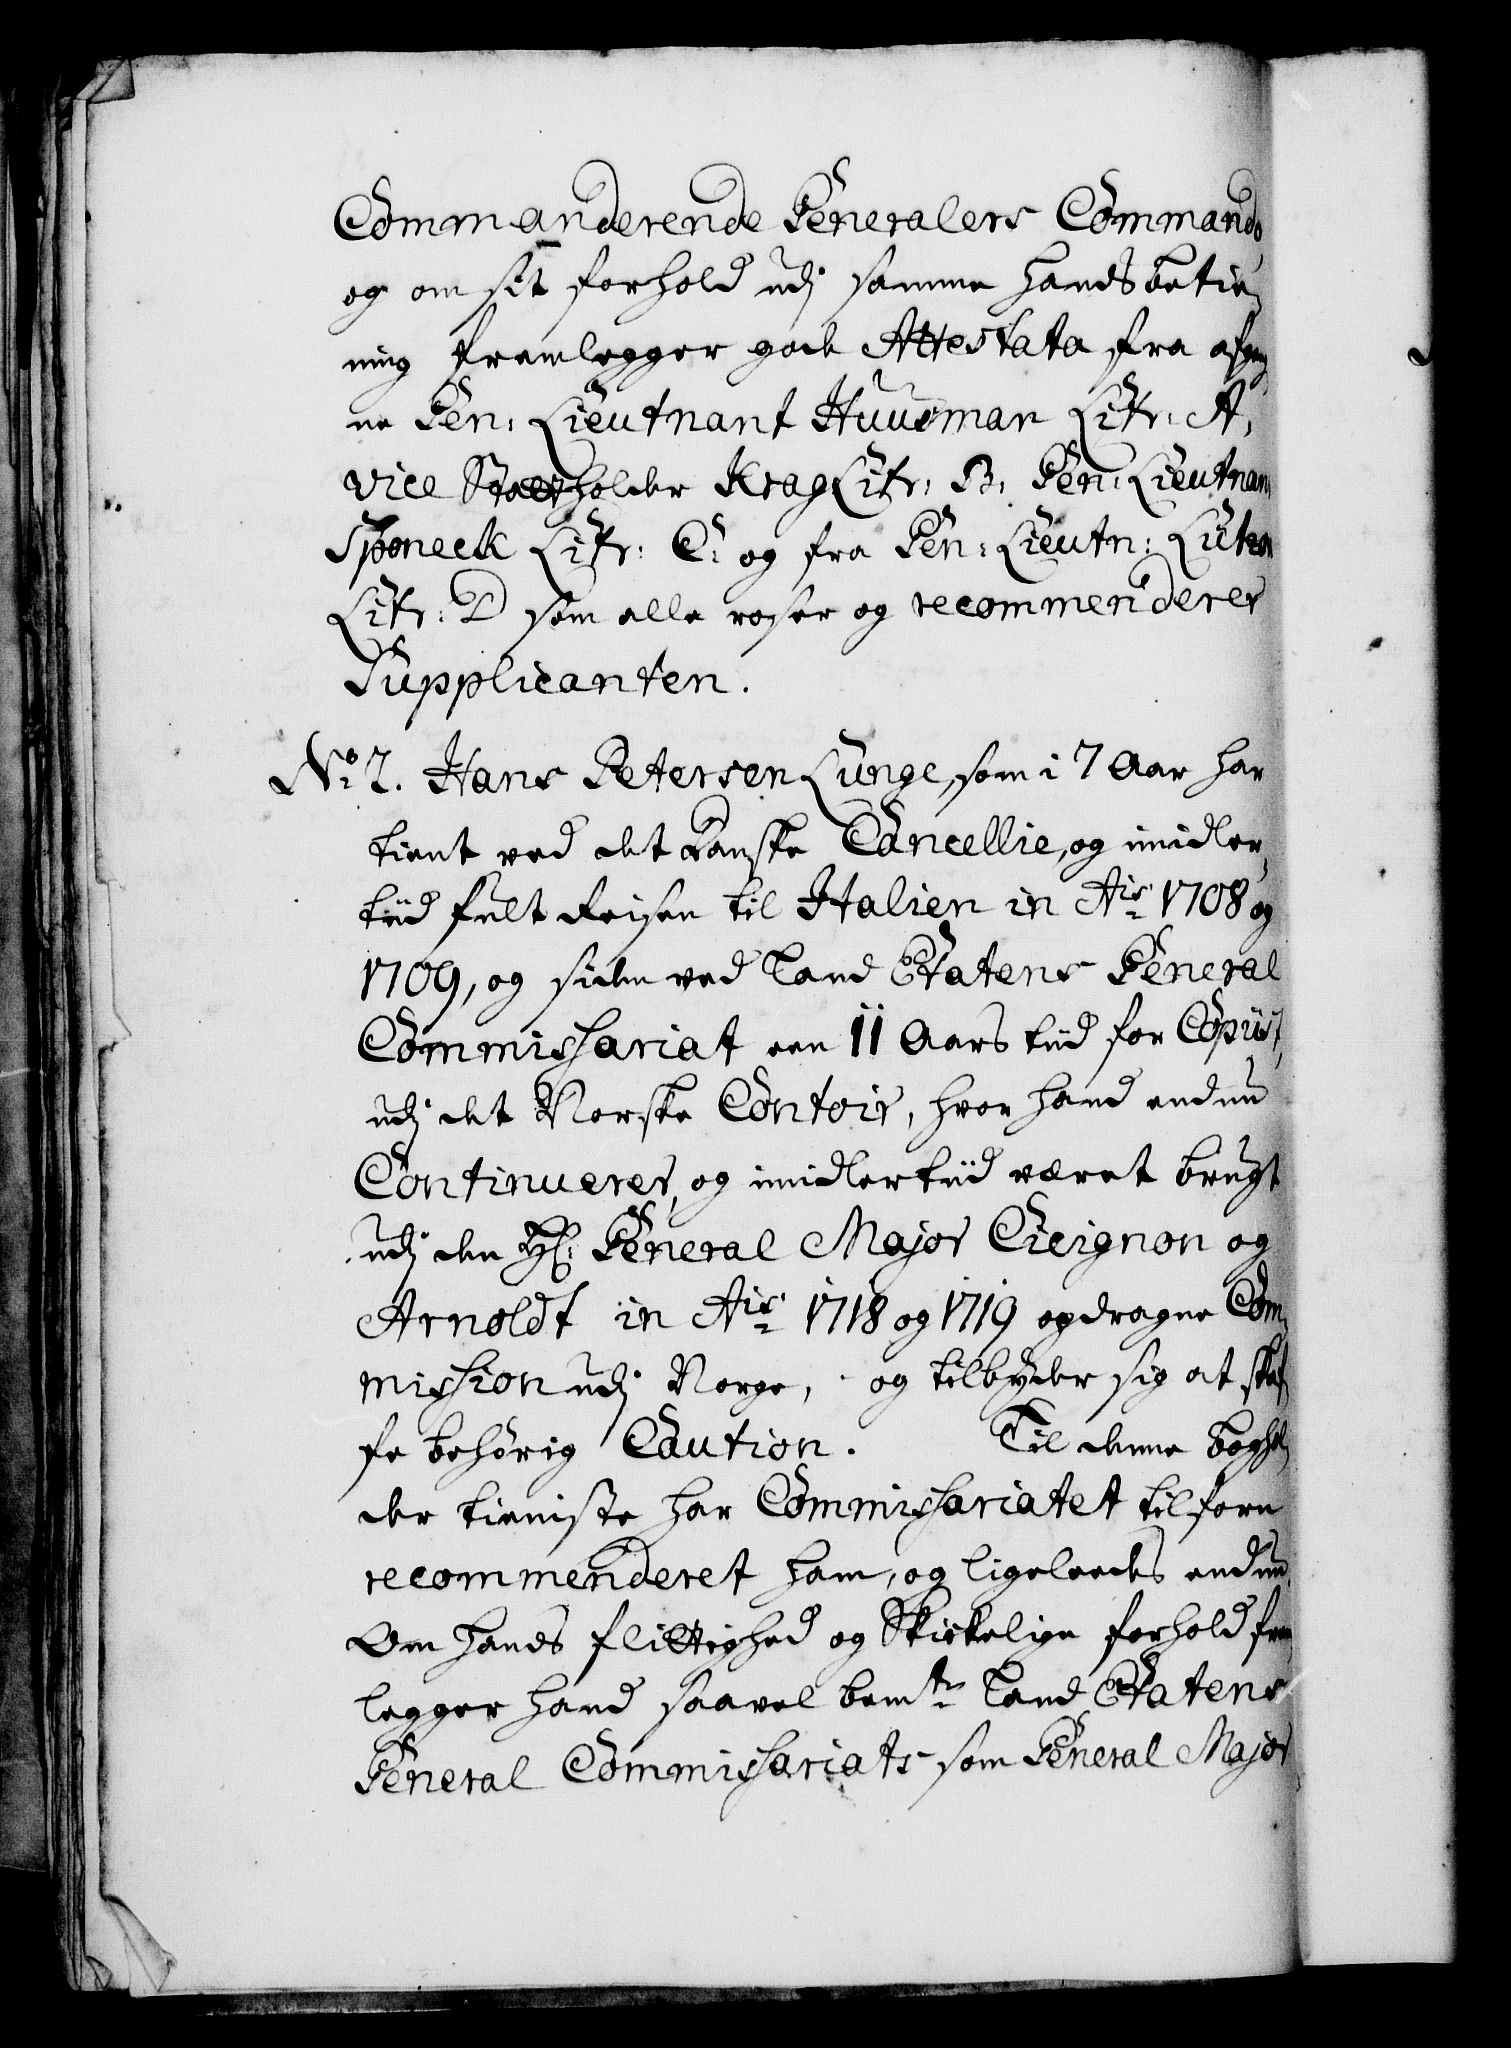 Commanderende Generalers Commando
og om sit forhold udj samme hands betie¬
ning fremlegger gode Attestata fra afgan¬
ne Gen: Lieutnant Huusman Litr: A,
vice Statholder Krag Litr: B, Gen: Lieutnan
Sponeck Litr: C: og fra Gen: Lieutn: Lützo
Litr: D som alle roser og recommenderer
Supplicanten.
No 2. Hans Petersen Lunge, som i 7 Aar har
tient ved det danske Cancellie, og imidler¬
tiid fult Reisen til Italien in Ais 1708 og
1709, og siden ved Land Etatens General
Commissariat een 11 Aars tiid for Copiist,
udj det Norske Contoir, hvor hand endnu
Continuerer, og imidlertiid været brugt
udj den Hr: General Major Cicignon og
Arnoldt in Ais 1718 og 1719 opdragne Com¬
mission udj Norge, og tilbyder sig at skaf¬
fe behörig Caution. Til denne boghol¬
der tieniste har Commissariatet tilforn
recommenderet ham, og ligeleedes endnu.
Om hands flittighed og Skickelige forhold frem
legger hand saavel bemte Land Etatens
General Commissariats som General Major